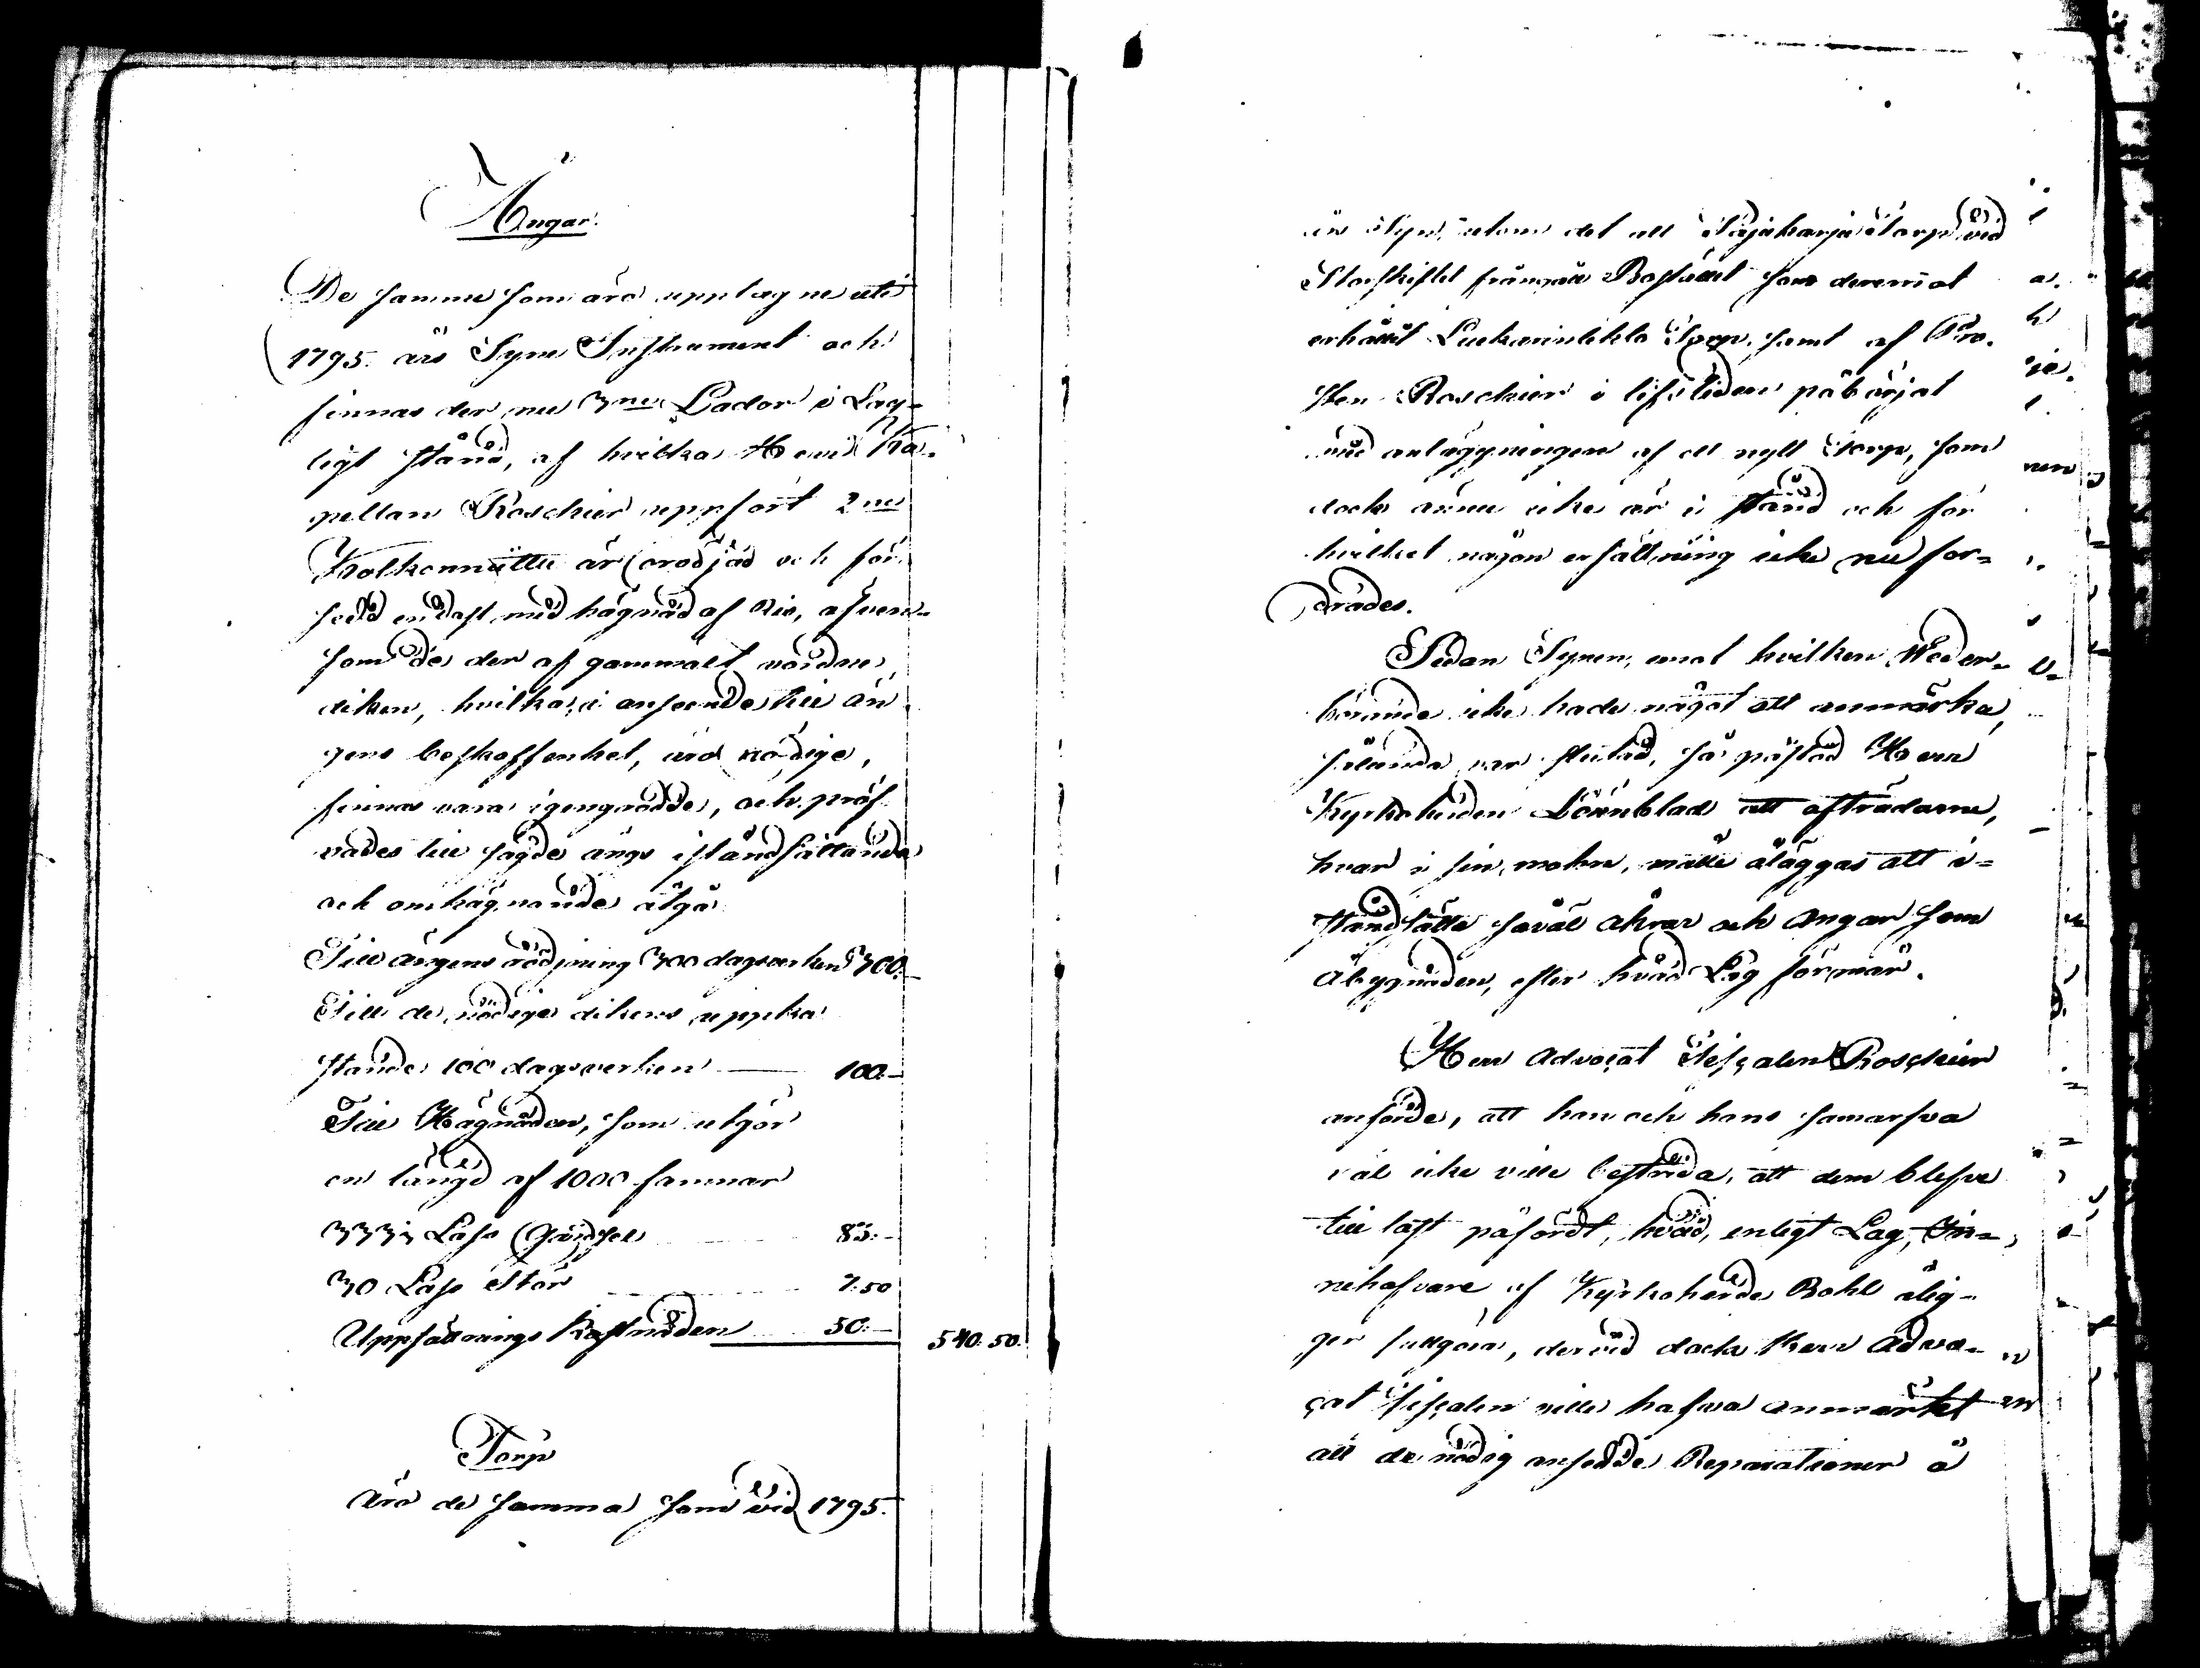 Ängar.
De samme som äro upptagne uti
1795. års Syne Instrument och
finnas der nu 3ne Lador i Lag-
ligt stånd, af hvilka Herr Ka-
pellan Roschier uppfört 2ne
Kolkonnüttu är orödjad och för
sedd endast med hägnad af Ris, äfven-
som de der af gammalt wardne
diken, hvilka, i anseende till än
gens beskaffenhet, äro nödige,
finnas vara igengrodde, och pröf
vades till sagde ängs iståndsättande
och omhägnande åtgå
Till ängens rödjning 300 dagsverken 300.-
Till de nödige dikens uppka
stande 100 dagsverken 100.-
Till Hägnaden, som utgör
en längd af 1000 famnar
333⅓ Lass Gärdsel 83.-
30 Lass Stör 7.50
Uppsättnings Kostnaden 50.- 540.50.
Torp
äro de samma som vid 1795.
års Syn, utom det att Torp vid
Storskiftet frångått Bostället som deremot
erhållit Torp, samt af Pro-
sten Roschier i lifstiden påbörjat
med anläggningen af ett nytt Torp, som
dock ännu icke är i stånd och för
hvilket någon ersättning icke nu for-
drades.
Sedan Synen, emot hvilken Weder-
börande icke hade något att anmärka,
sålunda var slutad, så påstod Herr
Kyrkoherden Lönnblad att afträdarne,
hvar i sin mohn, måtte åläggas att i-
ståndsätta såväl åkrar och ängar som
Åbyggnaden, efter hvad Lag förmår.
Herr Advocat Fiscalen Roschier
anförde, att han och hans samarfva
väl icke ville bestrida, att dem blefve
till last påfördt, hvad, enligt Lag, In-
nehafvare af Kyrkoherde Bohl ålig-
ger fullgöra, dervid dock Herr Advo-
cat Fiscalen ville hafva anmärket
att de nödig ansedde Reparationer å